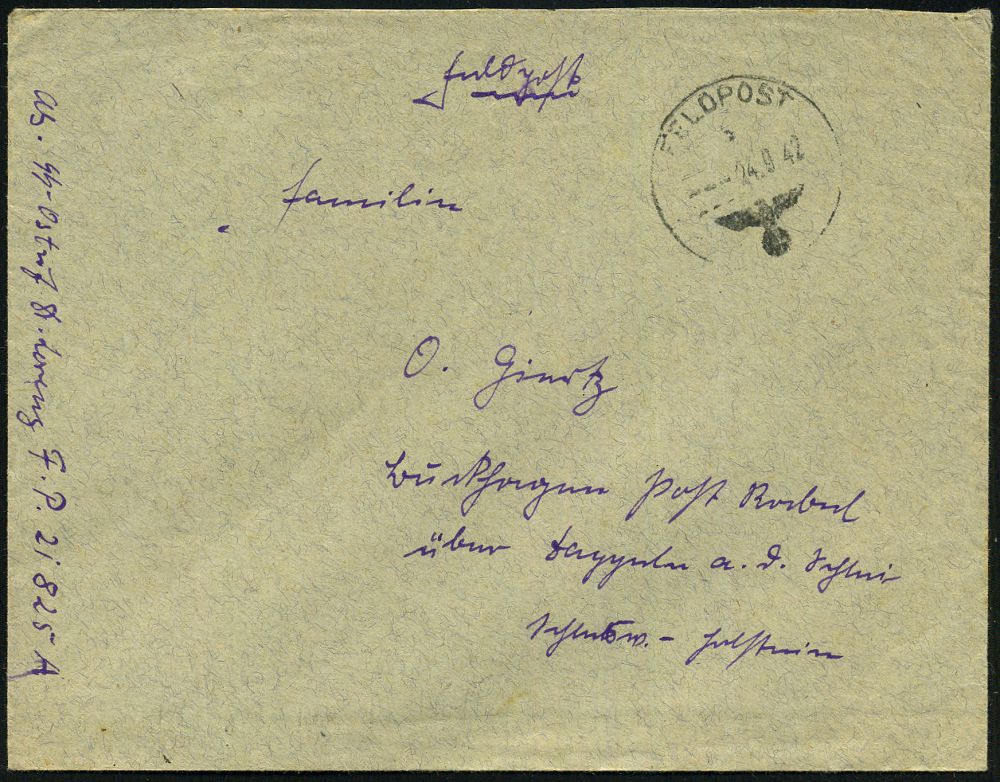 Feldpost
FELDPOST
24.9.42
Familie
O. Giertz
Buckhagen Post Rabel
über Kappeln a. d. Schlei
Schlesw. - Holstein
Abs. SS-Ostuf D. Lorenz F. P. 21 825 A